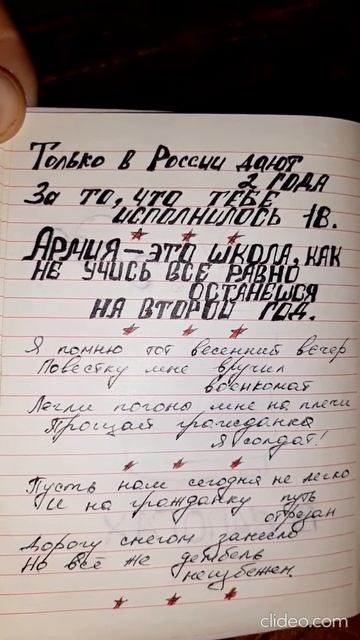 Только в России дают
2 года
За то, что тебе
исполнилось 18.
Армия — это школа, как
не учись всё равно
останешся
на второй год.
Я помню тот весенний вечер
Повестку мне вручил
военкомат
Легли погоны мне на плечи
Прощай гражданка
Я солдат!
Пусть нам сегодня не легко
И на гражданку путь
отрезан
Дорогу снегом занесло
Но всё же дембель
неизбежен.
clideo.com